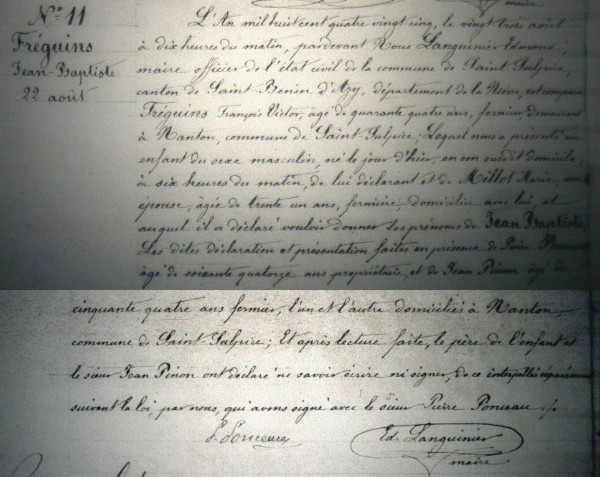 maire
N° 11
Fréguins
Jean-Baptiste
22 août
L'An mil huit cent quatre vingt cinq, le vingt trois août
à dix heures du matin, pardevant Nous Languinier Edmond
maire officier de l'état civil de la commune de Saint Sulpice,
canton de Saint Benin d'Azy, département de la Nièvre, est comparu
Fréguins François Victor, âgé de quarante quatre ans, fermier demeurant
à Nanton, commune de Saint-Sulpice; Lequel nous a présenté un
enfant du sexe masculin, né le jour d'hier, en son susdit domicile,
à six heures du matin, de lui déclarant et de Millot Marie, son
épouse, âgée de trente un ans, fermière domiciliée avec lui, et
auquel il a déclaré vouloir donner les prénoms de Jean Baptiste
Les dites déclaration et présentation faites en présence de
âgé de soixante quatorze ans propriétaire, et de Jean Pinon âgé de
cinquante quatre ans fermier, l'un et l'autre domiciliés à Nanton
commune de Saint Sulpice; Et après lecture faite, le père de l'enfant et
le sieur Jean Pinon ont déclaré ne savoir écrire ni signer, de ce interpellés séparément
suivant la loi, par nous, qui avons signé avec le sieur Pierre Ponceau ./.
P. Ponceau
Ed. Languinier
maire